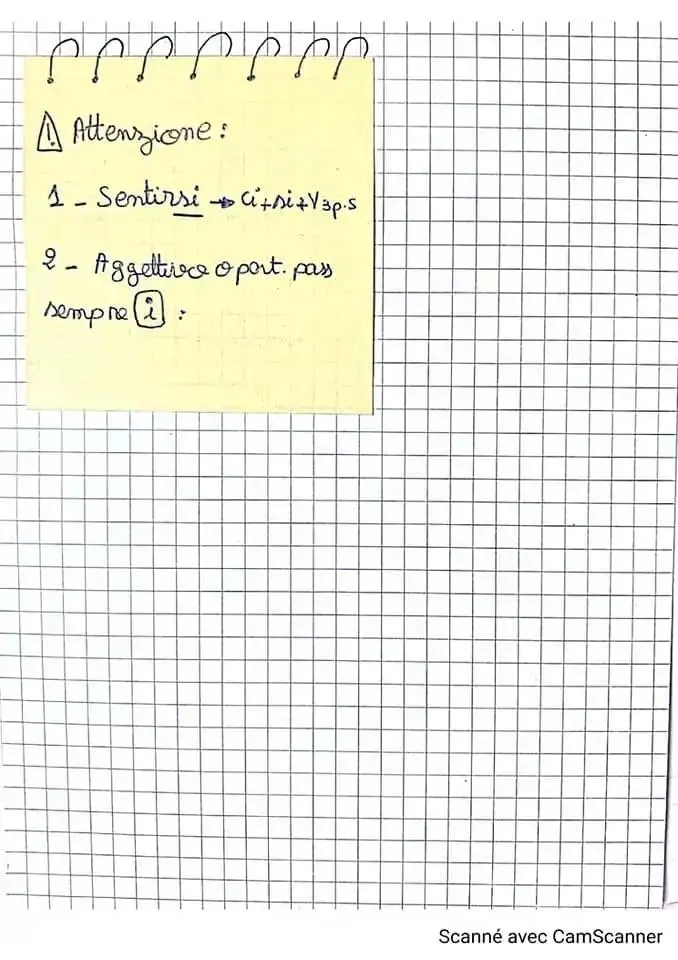 ⚠ Attenzione :
1 - Sentirsi → Ci+si+V3p.s
2 - Aggettivo o part. pass
sempre i :
Scanné avec CamScanner